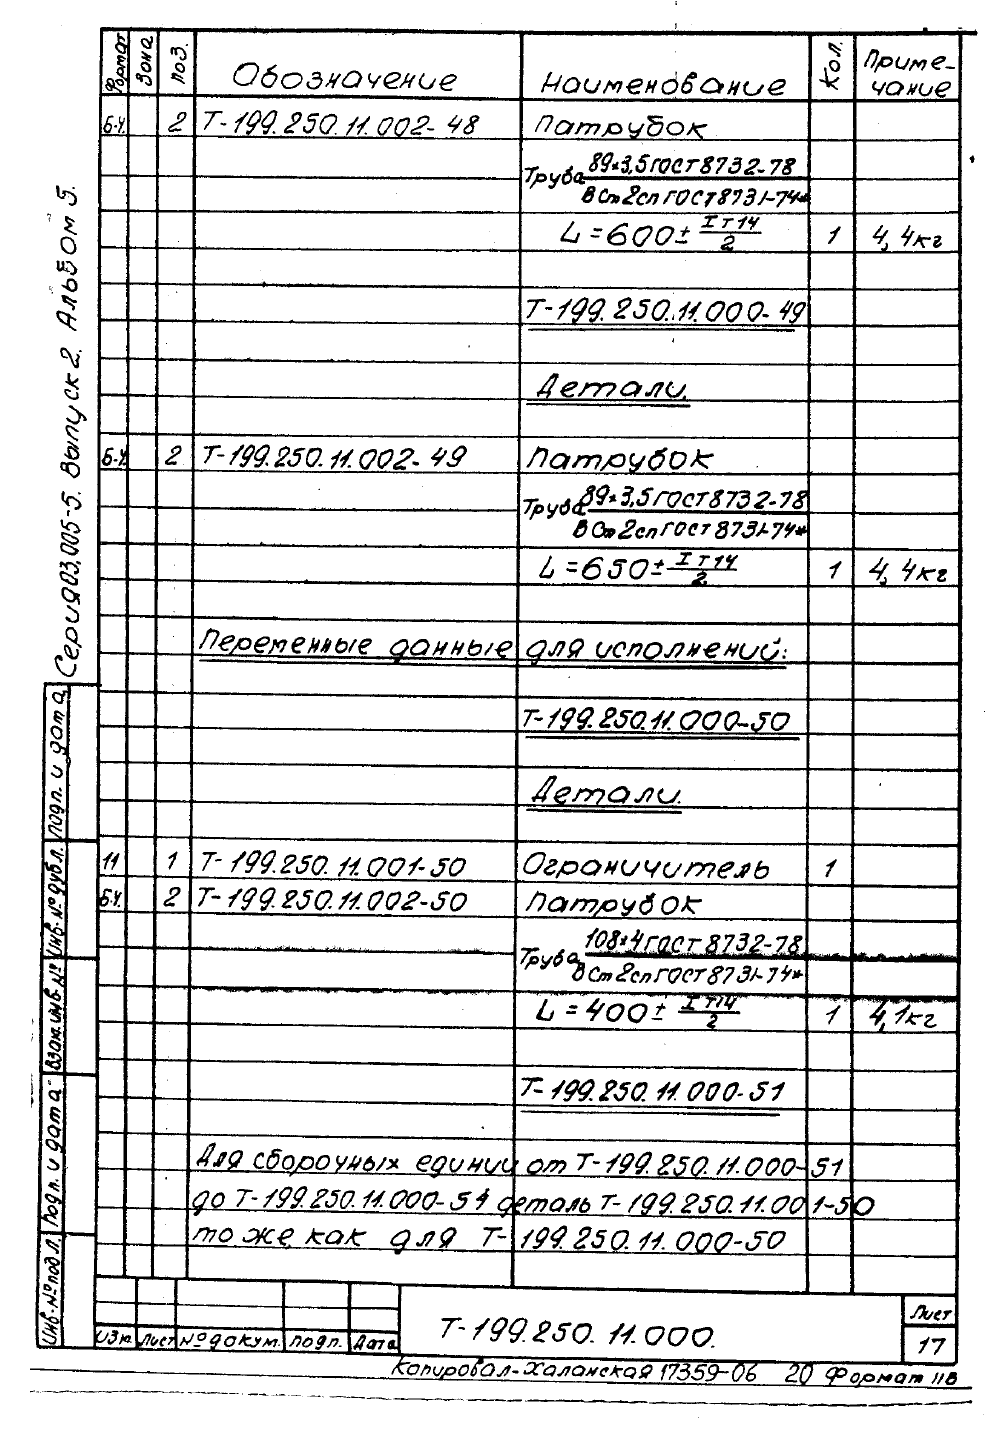 Формат Зона Поз. Обозначение Наименование Кол. Приме-
чание
Б-Ч. 2 Т-199.250.11.002-48 Патрубок
Труба 89×3,5 ГОСТ 8732-78
В Ст 2сп ГОСТ 8731-74*
L = 600 ± IT14/2 1 4,4кг
Т-199.250.11.000-49
Детали.
Б-Ч. 2 Т-199.250.11.002-49 Патрубок
Труба 89×3,5 ГОСТ 8732-78
В Ст 2сп ГОСТ 8731-74*
L = 650 ± IT14/2 1 4,4кг
Переменные данные для исполнений:
Т-199.250.11.000-50
Детали.
11 1 Т-199.250.11.001-50 Ограничитель 1
Б-Ч. 2 Т-199.250.11.002-50 Патрубок
Труба 108×4 ГОСТ 8732-78
В Ст 2сп ГОСТ 8731-74*
L = 400 ± IT14/2 1 4,1кг
Т-199.250.11.000-51
Для сборочных единиц от Т-199.250.11.000-51
до Т-199.250.11.000-54 деталь Т-199.250.11.001-50
то же как для Т-199.250.11.000-50
Серия 03.005-5. Выпуск 2. Альбом 5.
Инв. № подл. Подп. и дата Взам. инв. № Инв. № дубл. Подп. и дата
Изм. Лист № докум. Подп. Дата
Т-199.250.11.000.
Лист
17
Копировал-Халанская 17359-06 20 Формат 11В